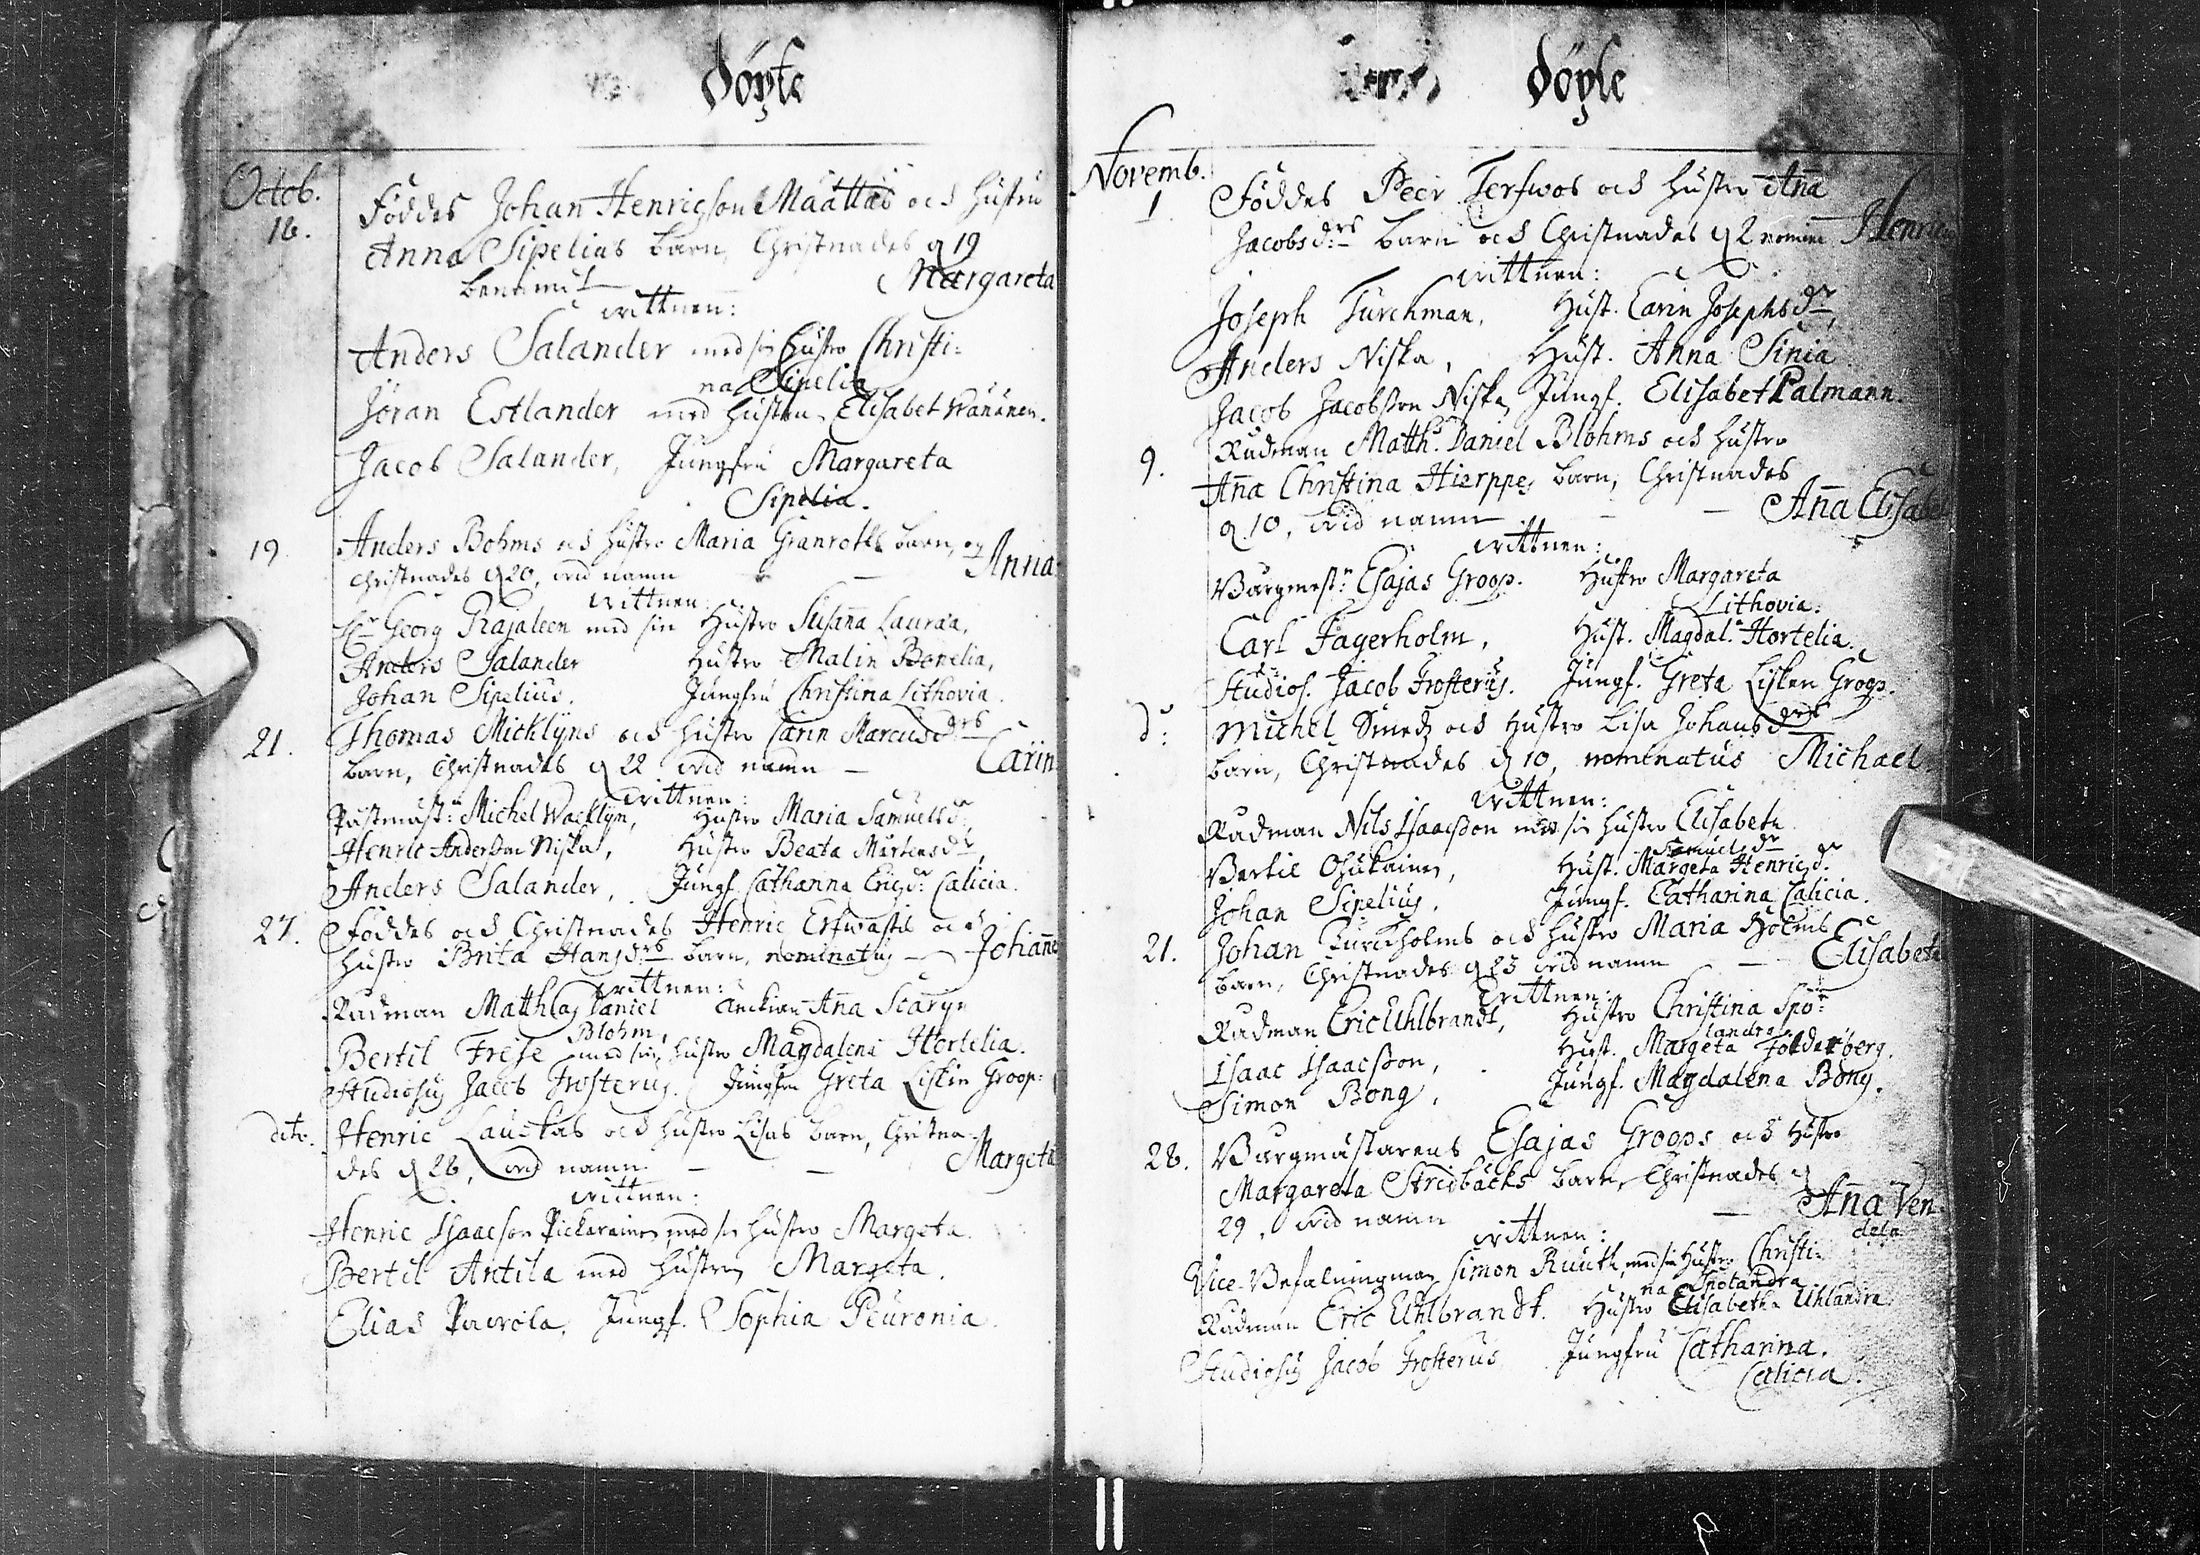 Döpte
Octob.
16. Föddes Johan Henrigson Määttäs och hustru
Anna Sipelias barn, Christnades d 19
benämd Margareta
wittnen:
Anders Salander med sin hustro Christi-
na Sipelia
Jöran Estlander med hustru Elisabet Wänänen.
Jacob Salander, Jungfru Margareta
Sipelia.
19. Anders Bohms och hustro Maria Granroths barn, og
Christnades d 20, wid namn — Anna
wittnen:
Hr Georg Rajaleen med sin Hustro Susana Lauræa,
Anders Salander Hustro Malin Bonelia,
Johan Sipelius. Jungfru Christina Lithovia.
21. Thomas Micklijns och hustro Carin Marcusdrs
barn, Christnades d 22 wid namn — Carin
wittnen:
Påstmäst: Michel Wacklyn, Hustro Maria Samuelsdr,
Henric Andersson Niska, Hustro Beata Mårtensdr,
Anders Salander, Jungf. Catharina Ericsdr Calicia.
27. Föddes och Christnades Henric Erfwastis och
hustro Brita Hansdrs barn, nominatus — Johanne
wittnen:
Rådman Matthias Daniel Enckian Aña Scaryn
Blohm,
Bertil Frese med sin hustro Magdalena Hortelia.
Studiosus Jacob Frosterus. Jungfru Greta Lisken Groop:
dito. Henric Lauskas och hustro Lisas barn, Christna-
des d 28, wid namn — — Margeta
wittnen:
Henric Isaacson Pickarainen med sin hustro Margeta.
Bertil Antila med hustru Margeta.
Elias Pawola, Jungf. Sophia Peuronia.
Döpte
Novemb.
1. Föddes Peer Terfwos och hustro Aña
Jacobsdrs barn och Christnades d 2 nomine Henric
wittnen:
Joseph Turchman, Hust. Carin Josephsdr,
Anders Niska, Hust. Anna Sinia
Jacob Jacobsson Niska, Jungf. Elisabet Palmann.
9. Rådman Matth: Daniel Blohms och hustro
Aña Christina Hierppes barn, Christnades
d 10, wid namn — — Aña Elisabet
wittnen:
Borgmest: Esajas Groop. Hustro Margareta
Lithovia.
Carl Fagerholm, Hust. Magdal: Hortelia.
Studios. Jacob Frosterus. Jungf. Greta Lisken Groop.
d: Michel Smedz och Hustro Lisa Johansdrs
barn, Christnades d 10, nominatus Michael
wittnen:
Rådman Nils Isaacsson med sin hustro Elisabeta
Samuelsdr
Bertil Ohukainen, Hust. Margeta Henricsdr
Johan Sipelius, Jungf. Catharina Calicia.
21. Johan Turckholms och hustro Maria Holms
barn, Christnades d 23 wid namn — Elisabeta
wittnen:
Rådman Eric Uhlbrandt, Hustro Christina Spo-
landra
Isaac Isaacsson, Hust. Margeta Folderberg.
Simon Bong, Jungf. Magdalena Bong.
28. Borgmästarens Esajas Groops och Hustro
Margareta Stridbäcks barn, Christnades d
29, wid namn — Aña Ven
dela
wittnen:
Vice-Befalningman Simon Ruuth, med sin Hustro Christi-
na Spolandra
Rådman Eric Uhlbrandt. Hustro Elisabetha Uhlandra
Studiosus Jacob Frosterus Jungfru Catharina.
Calicia.